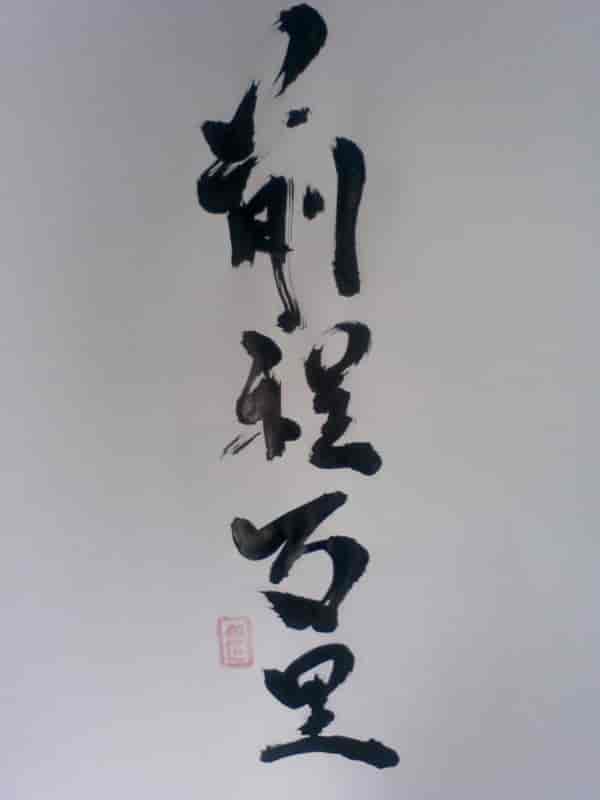 前程万里